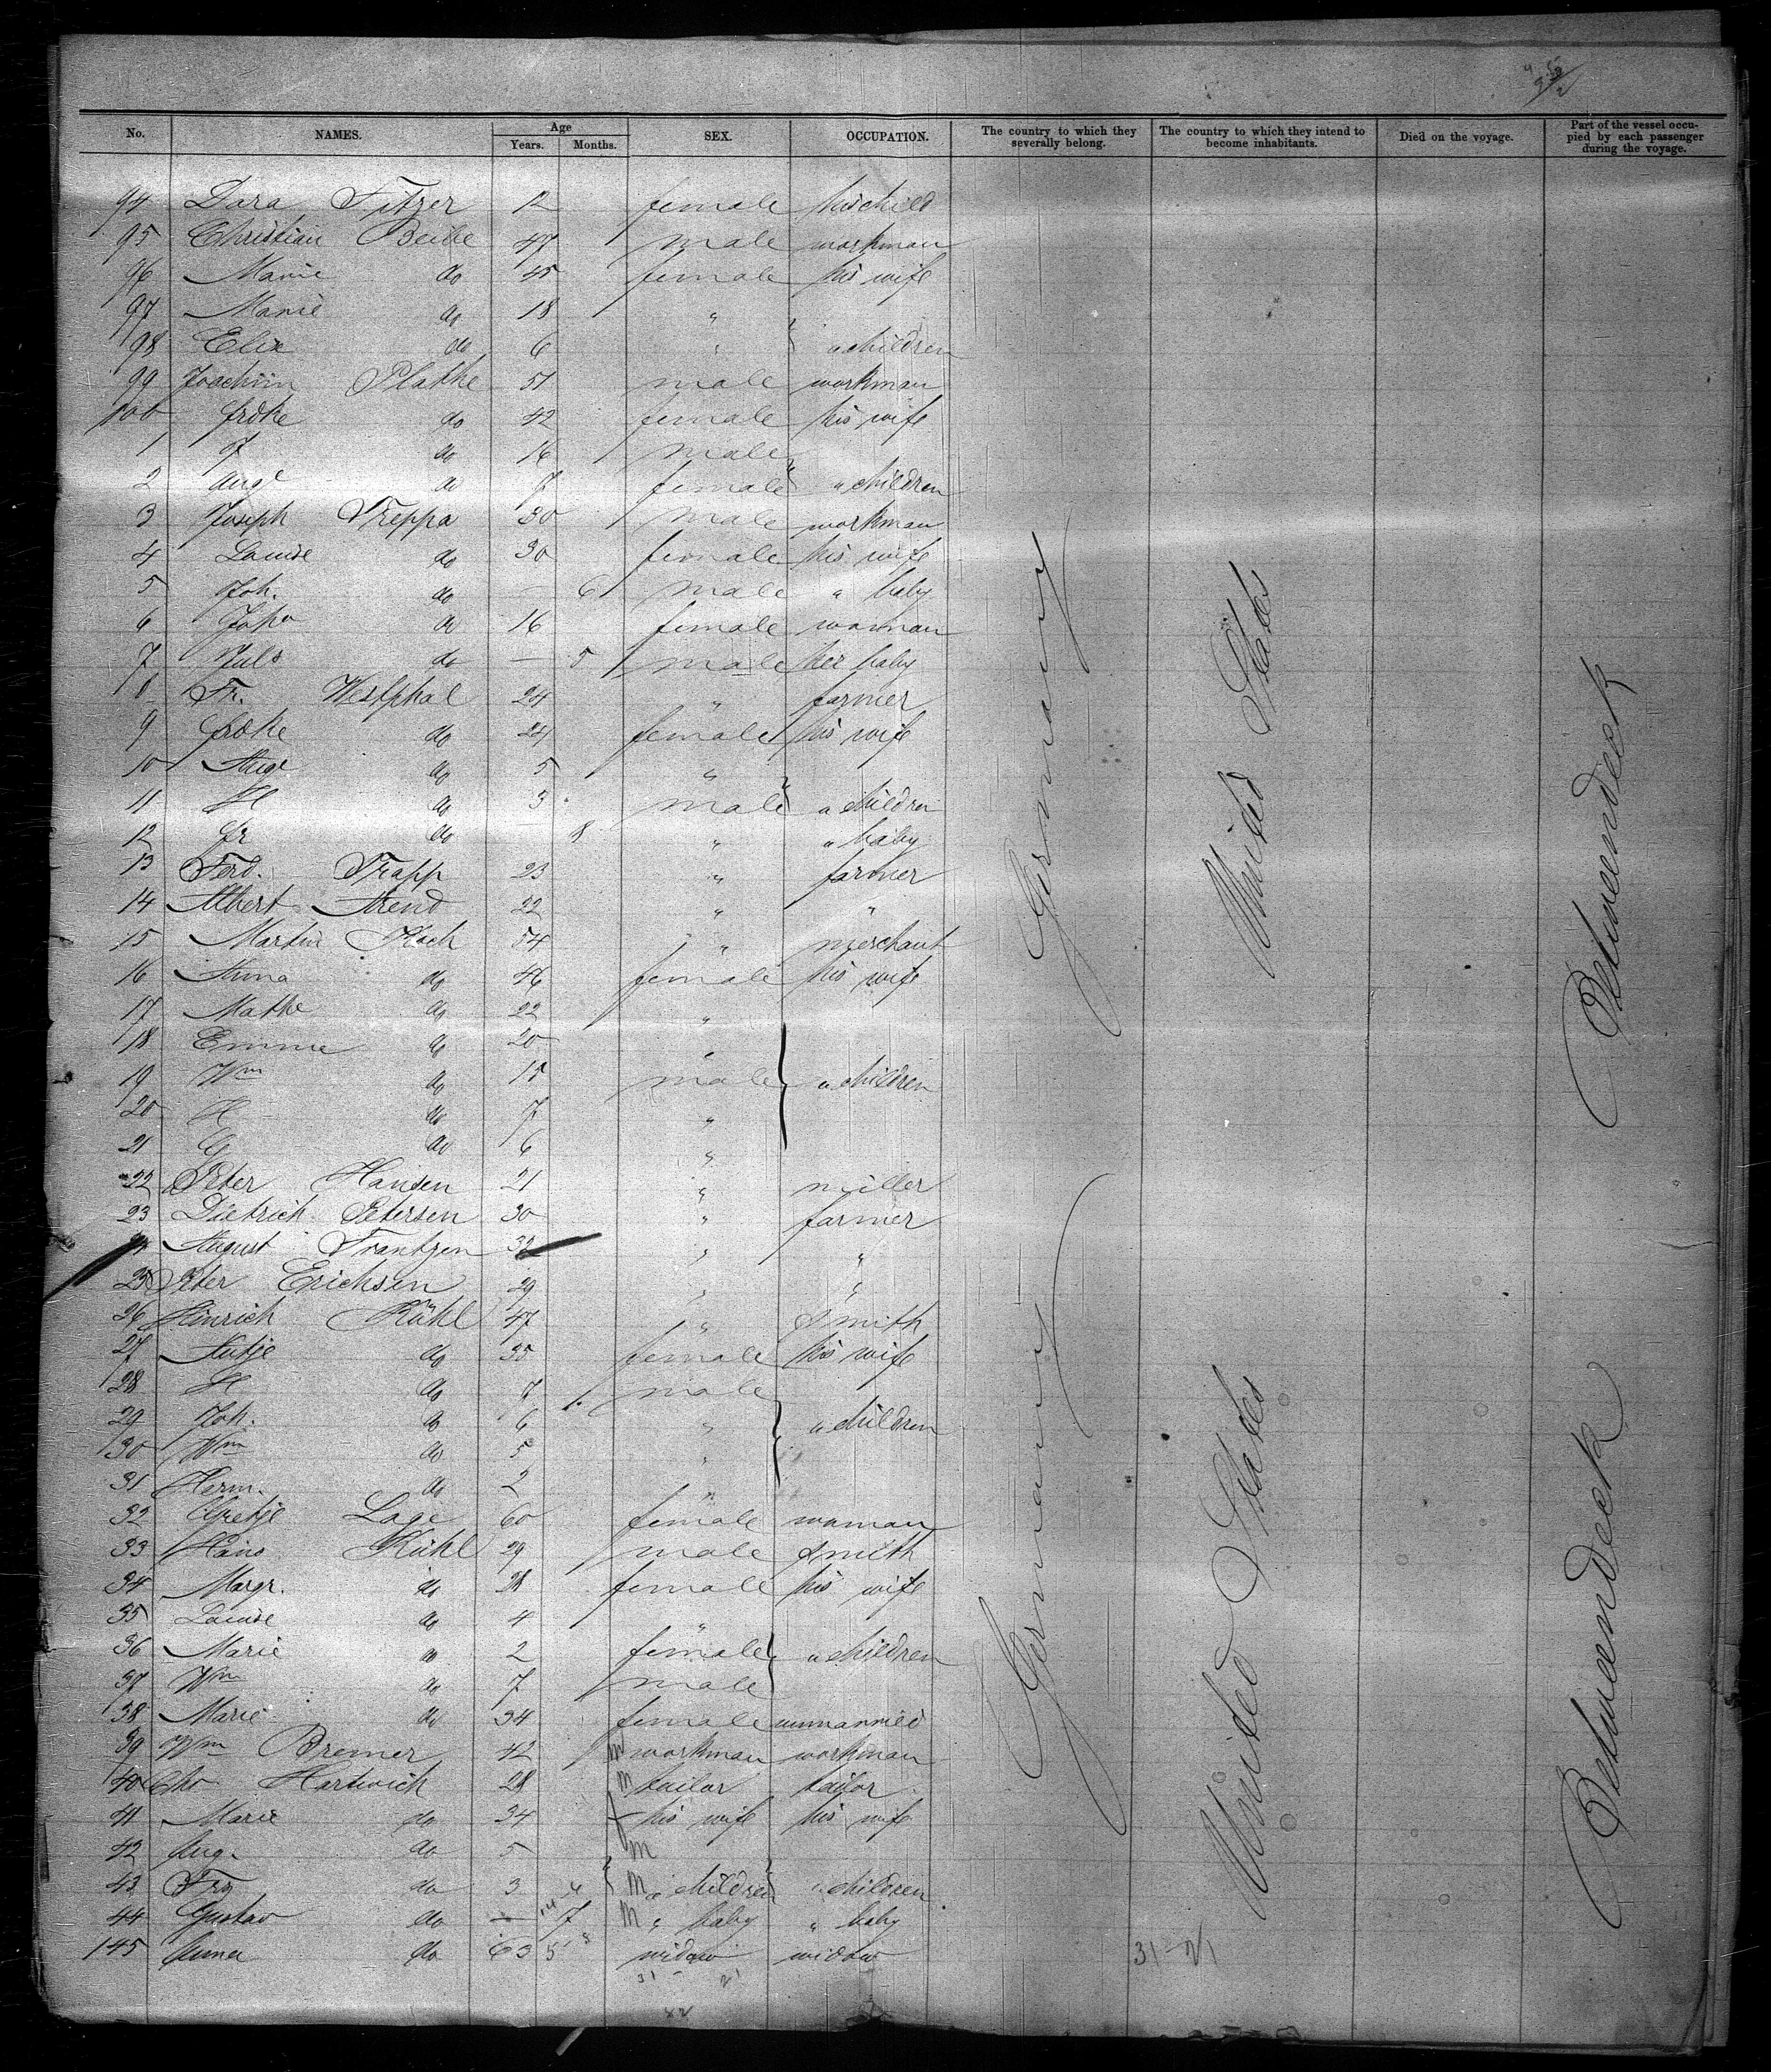 No. NAMES. Age Years. Months. SEX. OCCUPATION. The country to which they severally belong. The country to which they intend to become inhabitants. Died on the voyage. Part of the vessel occupied by each passenger during the voyage.
94 Dora Fitzer 12 female his child
95 Christian 47 male workman
96 Marie do 45 female his wife
97 Marie do 18 "
98 Elise do 6 " " children
99 Joachim Plathe 51 male workman
100 Frdke do 42 female his wife
1 F do 16 male
2 Auge do 7 female " children
3 Joseph Treppa 30 male workman
4 Louise do 30 female his wife
5 Joh. do — 6 male " baby
6 do 16 female woman
7 Juls do — 5 male her baby
8 Fr. Westphal 24 " farmer
9 Frdke do 24 female his wife
10 Auge do 5 "
11 H do 3 male " children
12 Fr do — 8 " " baby
13 Ferd. Trapp 23 " farmer
14 Albert Arend 22 " "
15 Martin Koch 54 " merchant
16 Anna do 46 female his wife
17 Mathe do 22 "
18 Emma do 20 "
19 Wm do 15 male " children
20 H do 7 "
21 G do 6 "
22 Peter Hansen 21 " miller
23 Dietrich Petersen 30 " farmer
24 August Frantzen 32 " "
25 Peter Erichsen 29 " "
26 Hinrich Kühl 47 " Smith
27 Antje do 35 female his wife
28 H do 7 male
29 Joh. do 6 " " children
30 Wm do 5 "
31 Herm. do 2 "
32 Gretje Lage 60 female woman
33 Hans Kühl 29 male Smith
34 Margr. do 28 female his wife
35 Louise do 4 "
36 Marie do 2 female " children
37 Wm do 7 male
38 Marie do 34 female unmarried
39 Wm Bremer 42 m workman workman
40 Chr. Hartwich 28 m tailor tailor
41 Marie do 34 f his wife his wife
42 Aug. do 5 m
43 Frz do 3 m " children " children
44 Gustav do — 7 m " baby " baby
145 Anna do 63 widow widow
Germany
United States
Betweendeck
Germany
United States
Betweendeck
31 - 21
31 - 21